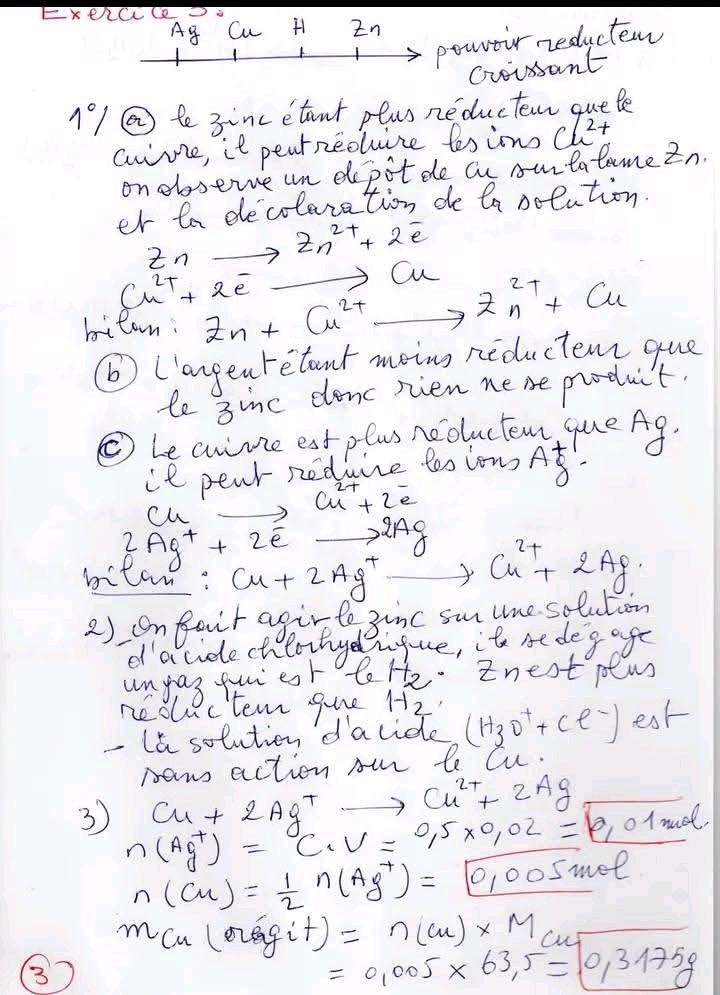 Exercice 3:
Ag Cu H Zn
pouvoir reducteur
croissant
1°/ (a) le zinc étant plus réducteur que le
cuivre, il peut réduire les ions Cu²⁺
on observe un dépôt de Cu sur la lame Zn.
et la décolaration de la solution.
Zn → Zn²⁺ + 2e⁻
Cu²⁺ + 2e⁻ → Cu
bilan: Zn + Cu²⁺ → Zn²⁺ + Cu
(b) L'argent étant moins réducteur que
le zinc donc rien ne se produit.
(c) Le cuivre est plus réducteur que Ag.
il peut réduire les ions Ag⁺.
Cu → Cu²⁺ + 2e⁻
2Ag⁺ + 2e⁻ → 2Ag
bilan : Cu + 2Ag⁺ → Cu²⁺ + 2Ag.
2) - On fait agir le zinc sur une solution
d'acide chlorhydrique, il se dégage
un gaz qui est le H₂. Zn est plus
réducteur que H₂.
- la solution d'acide (H₃O⁺ + Cl⁻) est
sans action sur le Cu.
3) Cu + 2Ag⁺ → Cu²⁺ + 2Ag
n(Ag⁺) = C.V = 0,5 × 0,02 = 0,01 mol.
n(Cu) = 1/2 n(Ag⁺) = 0,005 mol
mCu (réagit) = n(Cu) × MCu
= 0,005 × 63,5 = 0,3175g
3